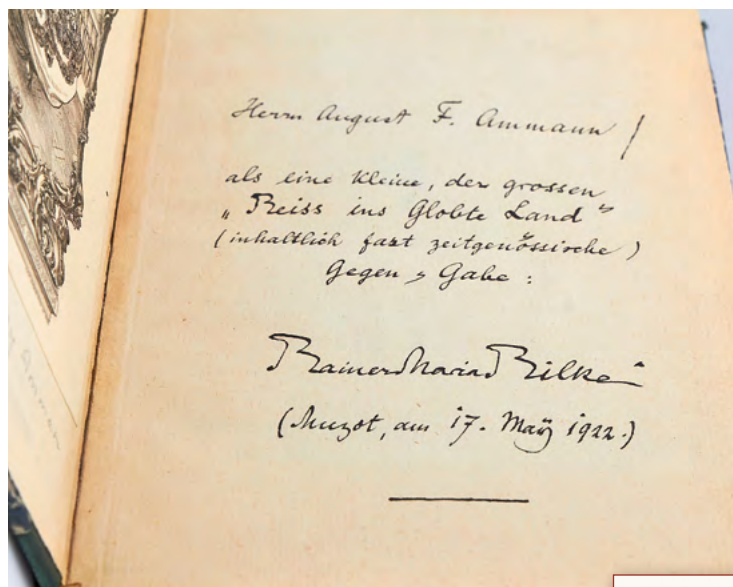 Herrn August F. Ammann /
als eine kleine, der grossen
„Reiss ins Globte Land"
(inhaltlich fast zeitgenössische)
Gegen = Gabe :
Rainer Maria Rilke
(Muzot, am 17. Maÿ 1922.)
Amman